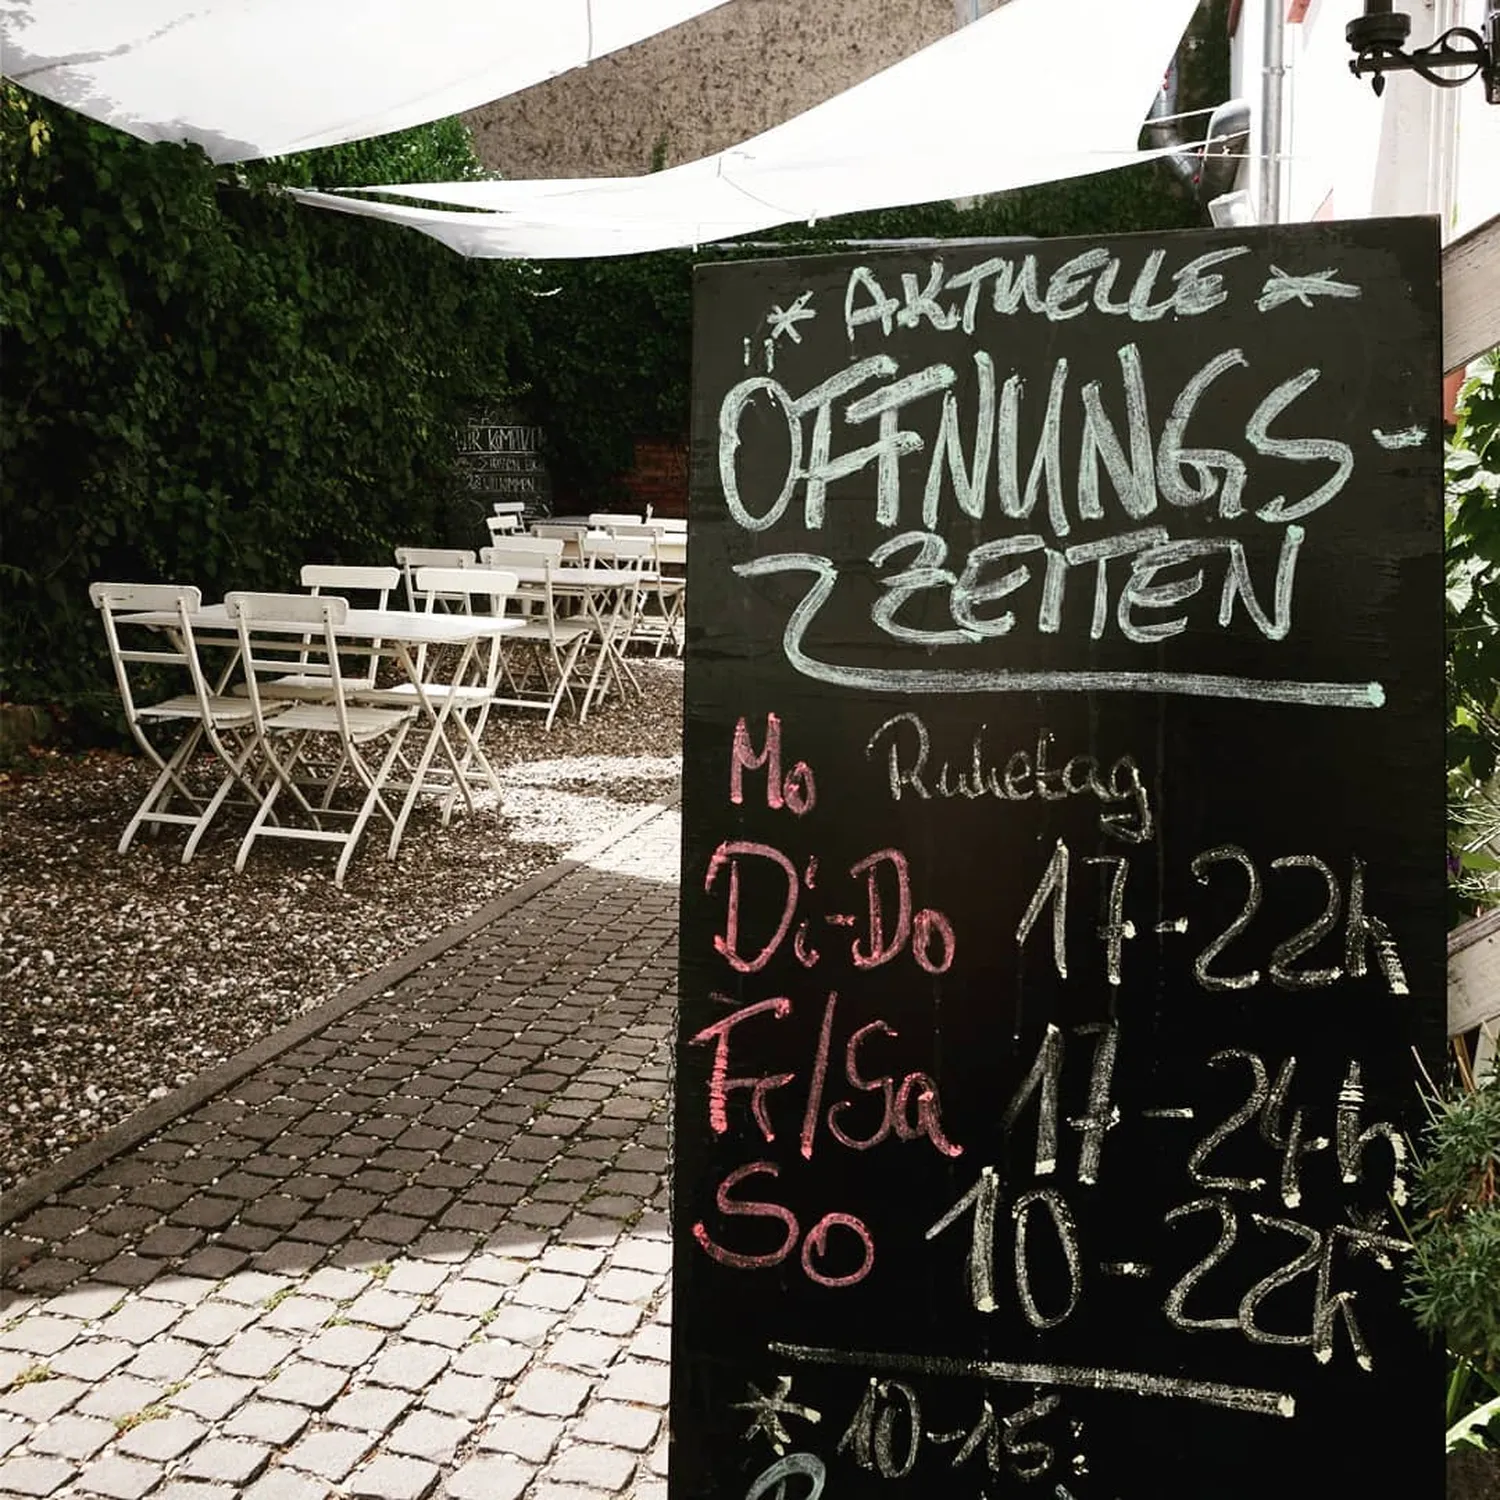 * AKTUELLE *
ÖFFNUNGS-
ZEITEN
Mo Ruhetag
Di-Do 17-22h
Fr/Sa 17-24h
So 10-22h*
* 10-15: